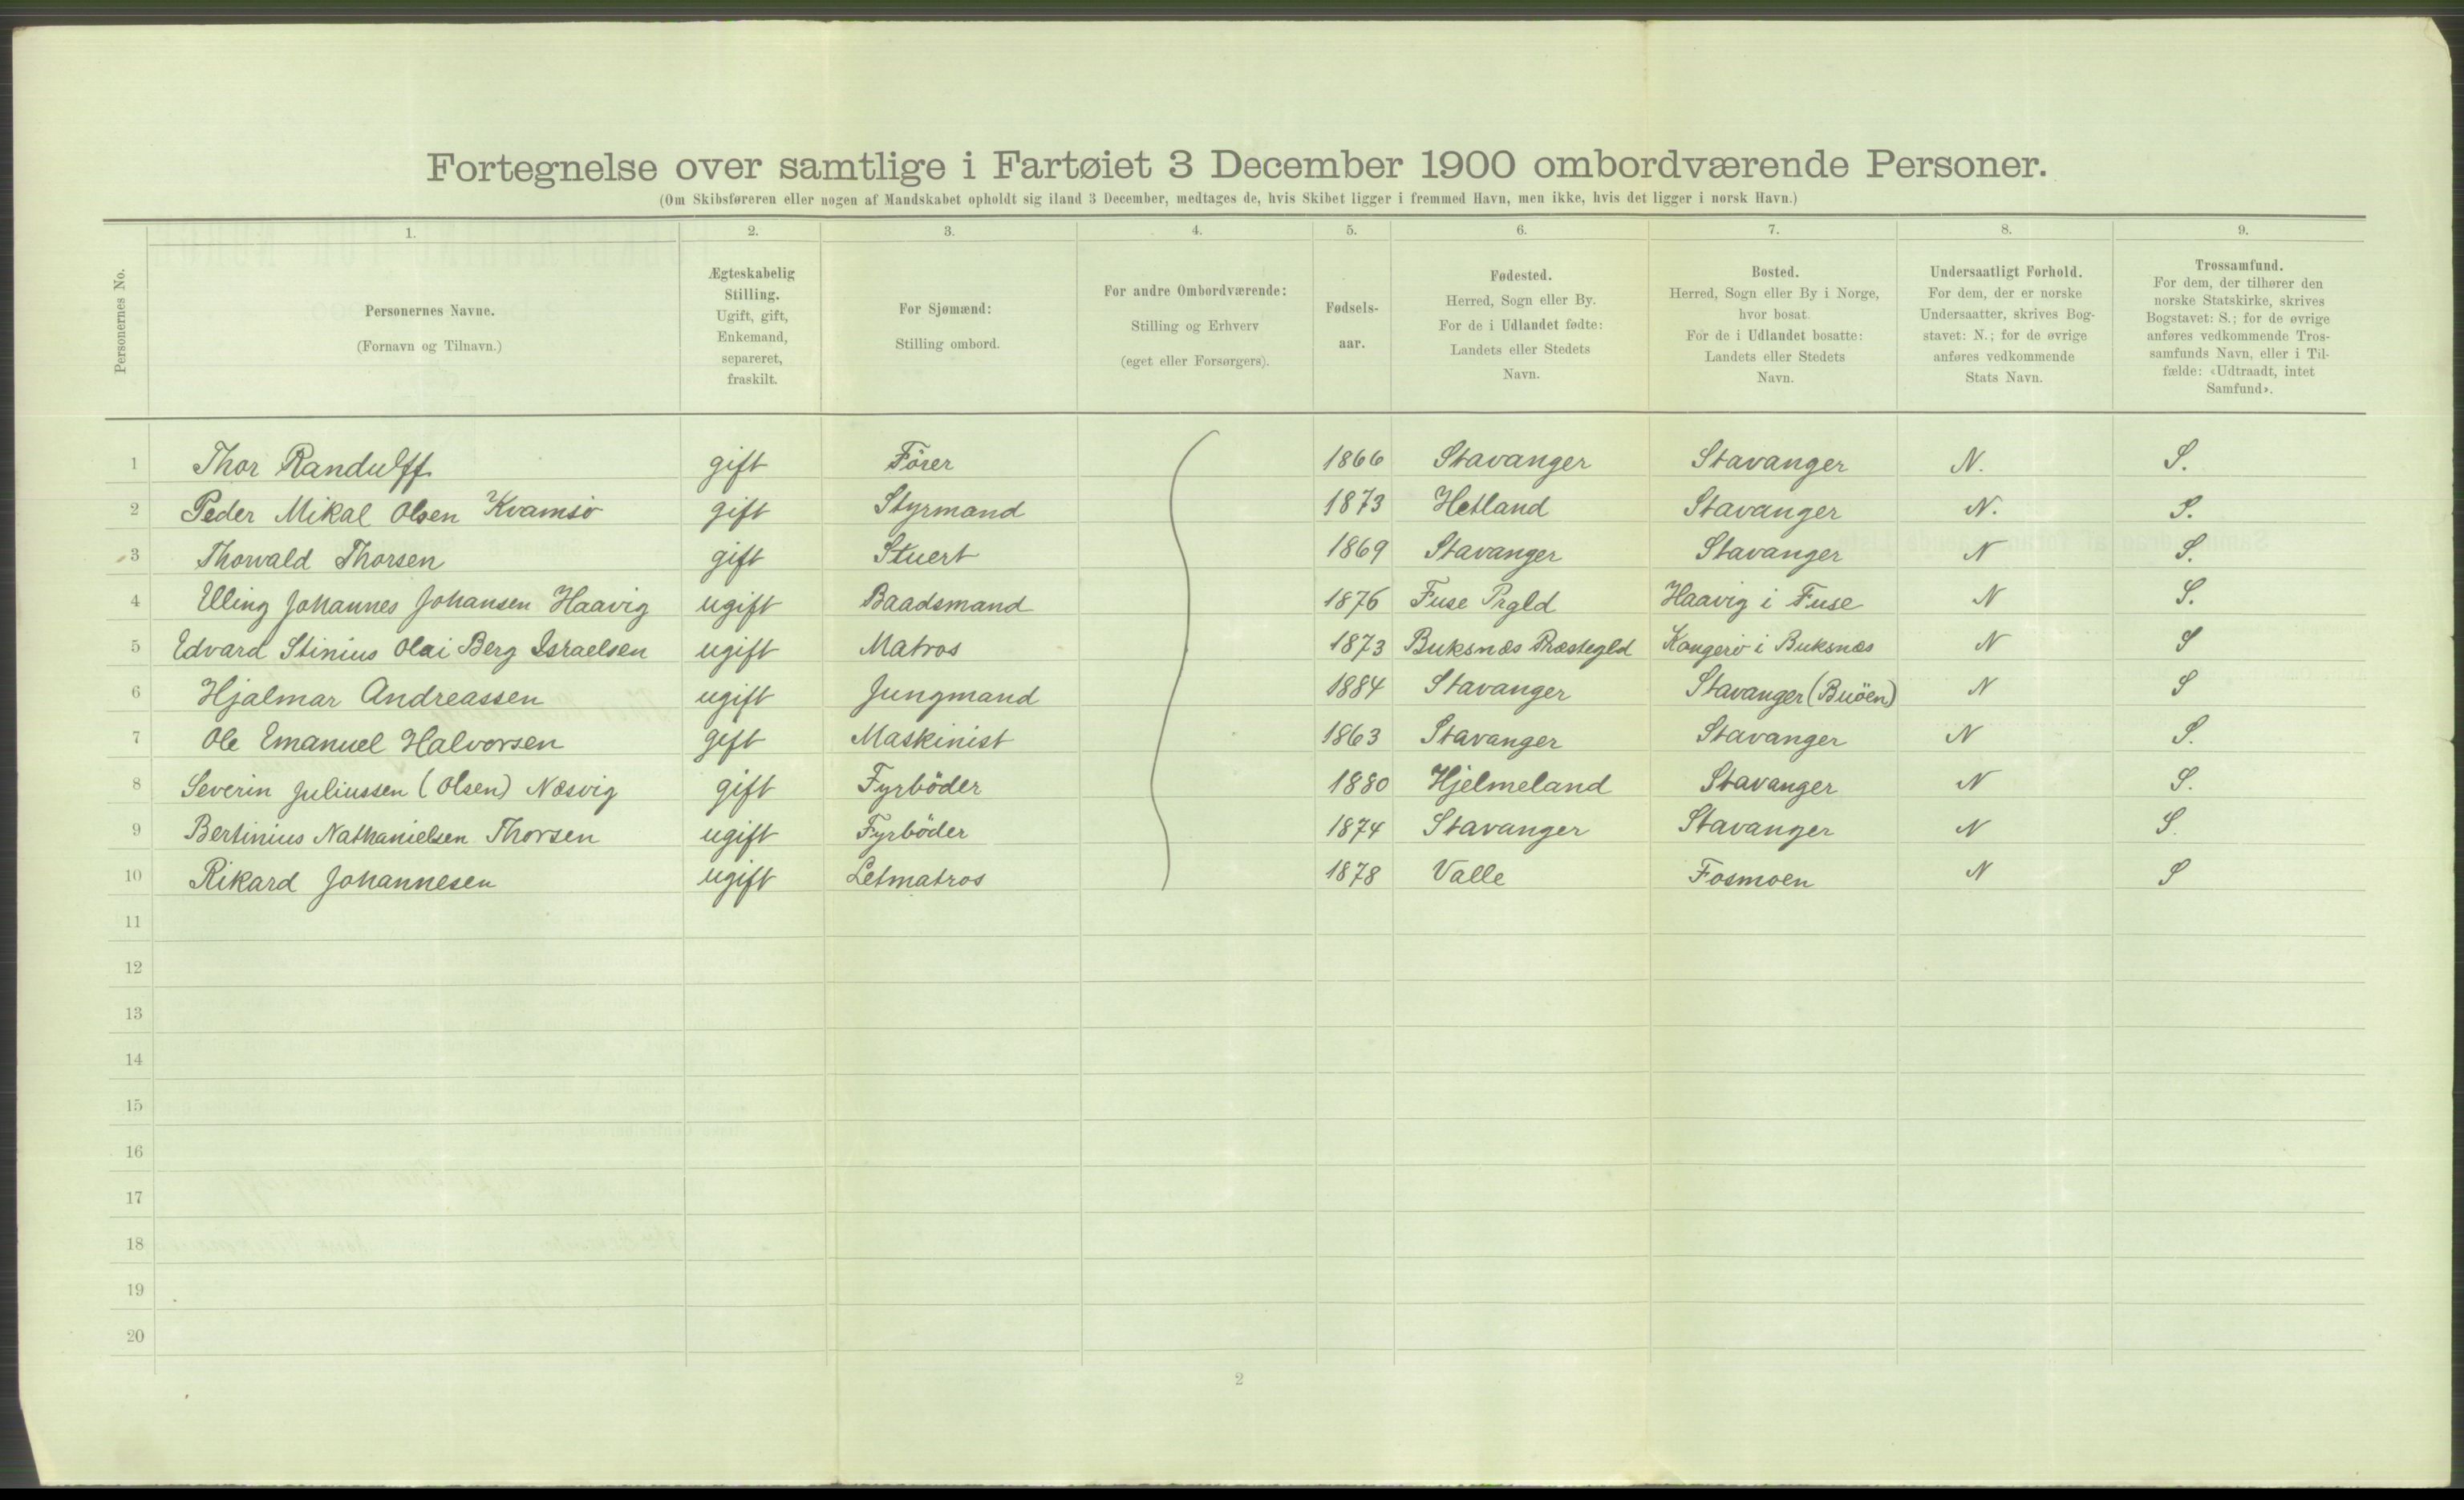 Fortegnelse over samtlige i Fartøiet 3 December 1900 ombordværende Personer.
(Om Skibsføreren eller nogen af Mandskabet opholdt sig iland 3 December, medtages de, hvis Skibet ligger i fremmed Havn, men ikke, hvis det ligger i norsk Havn.)
Personernes No.
1. 2. 3. 4. 5. 6. 7. 8. 9.
Personernes Navne.
(Fornavn og Tilnavn.)
Ægteskabelig
Stilling.
Ugift, gift,
Enkemand,
separeret,
fraskilt.
For Sjømænd:
Stilling ombord.
For andre Ombordværende:
Stilling og Erhverv
(eget eller Forsørgers).
Fødsels-
aar.
Fødested.
Herred, Sogn eller By.
For de i Udlandet fødte:
Landets eller Stedets
Navn.
Bosted.
Herred, Sogn eller By i Norge,
hvor bosat.
For de i Udlandet bosatte:
Landets eller Stedets
Navn.
Undersaatligt Forhold.
For dem, der er norske
Undersaatter, skrives Bog-
stavet: N.; for de øvrige
anføres vedkommende
Stats Navn.
Trossamfund.
For dem, der tilhører den
norske Statskirke, skrives
Bogstavet: S.; for de øvrige
anføres vedkommende Tros-
samfunds Navn, eller i Til-
fælde: «Udtraadt, intet
Samfund».
1 Thor Randulff gift Förer 1866 Stavanger Stavanger N. S.
2 Peder Mikal Olsen Kvamsö gift Styrmand 1873 Hetland Stavanger N. S.
3 Thorvald Thorsen gift Stuert 1869 Stavanger Stavanger N S.
4 Elling Johannes Johansen Haavig ugift Baadsmand 1876 Fuse Prgld Haavig i Fuse N S.
5 Edvard Stinius Olai Berg Israelsen ugift Matros 1873 Buksnæs Præstegld Kangerö i Buksnæs N S
6 Hjalmar Andreassen ugift Jungmand 1884 Stavanger Stavanger (Buöen) N S
7 Ole Emanuel Halvorsen gift Maskinist 1863 Stavanger Stavanger N S.
8 Severin Juliussen (Olsen) Næsvig gift Fyrböder 1880 Hjelmeland Stavanger N S.
9 Bertinius Nathanielsen Thorsen ugift Fyrböder 1874 Stavanger Stavanger N S.
10 Rikard Johannesen ugift Letmatros 1878 Valle Fosmoen N S
11
12
13
14
15
16
17
18
19
20
2